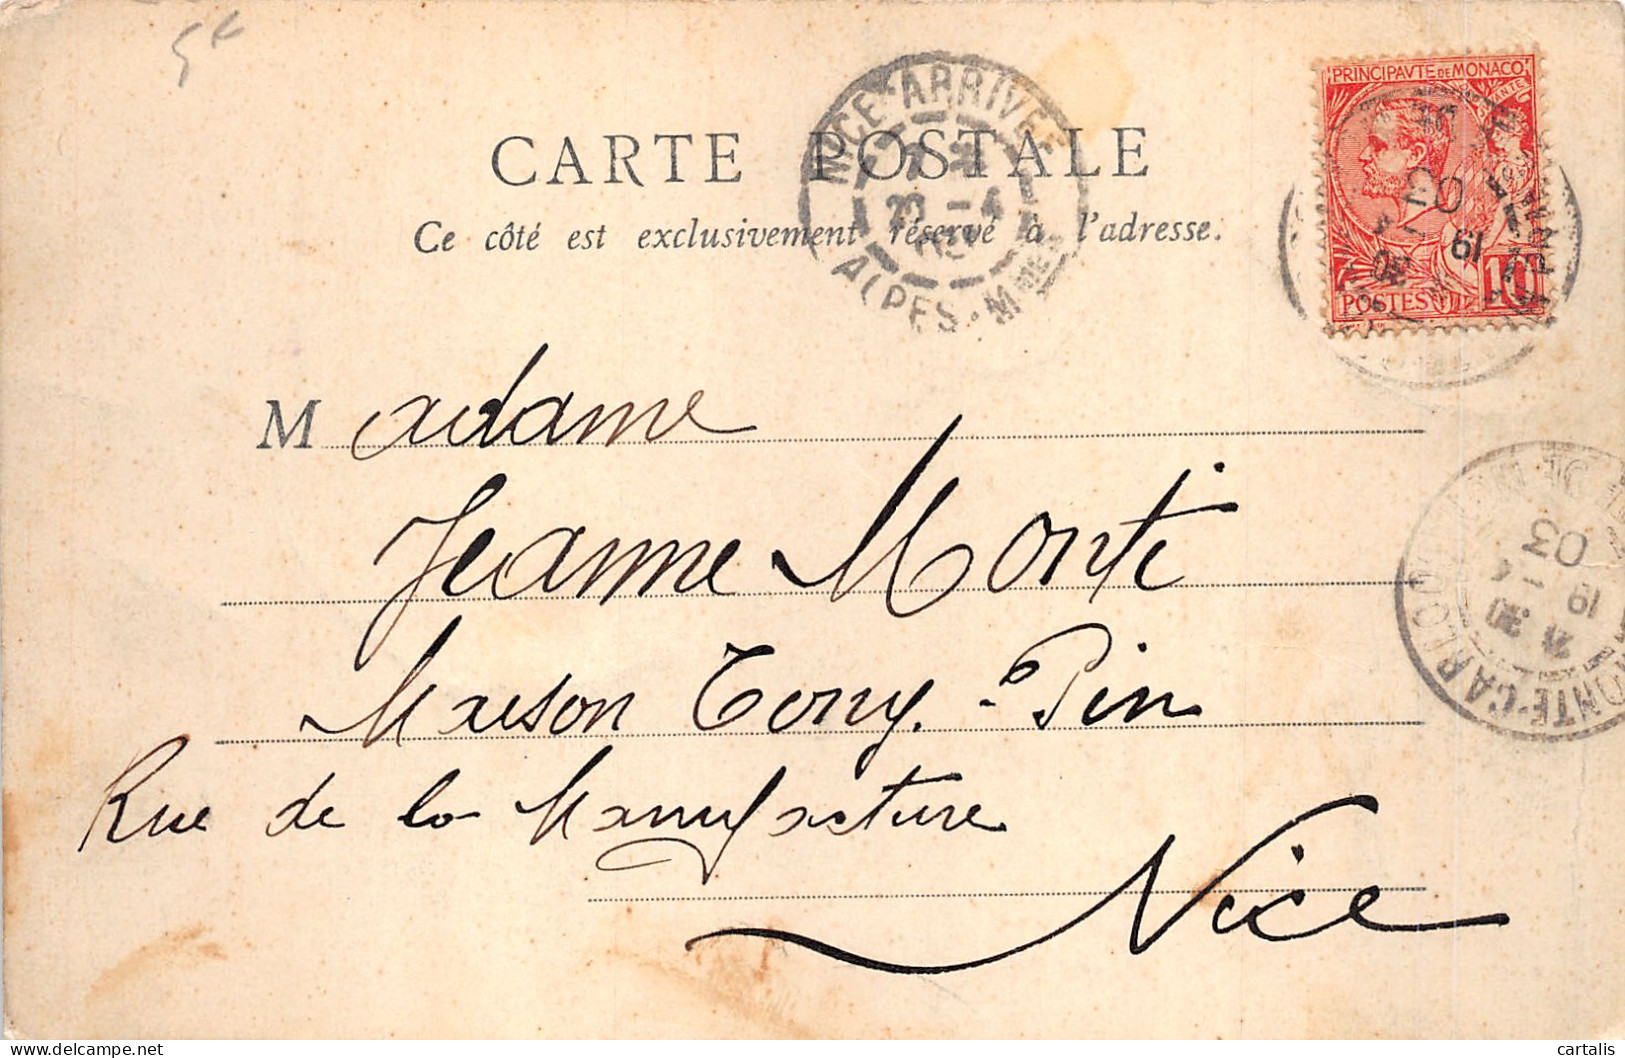 5€
NICE ARRIVEE
20 -4
03
ALPES-MMES
PRINCIPAVTE DE MONACO
POSTES 10
03
19
CARTE POSTALE
Ce côté est exclusivement réservé à l'adresse.
Madame
Jeanne Monti
Maison Tony-Pin
Rue de la Manufacture
Nice
MONTE-CARLO
03
19 - 4
21 30
cartalis